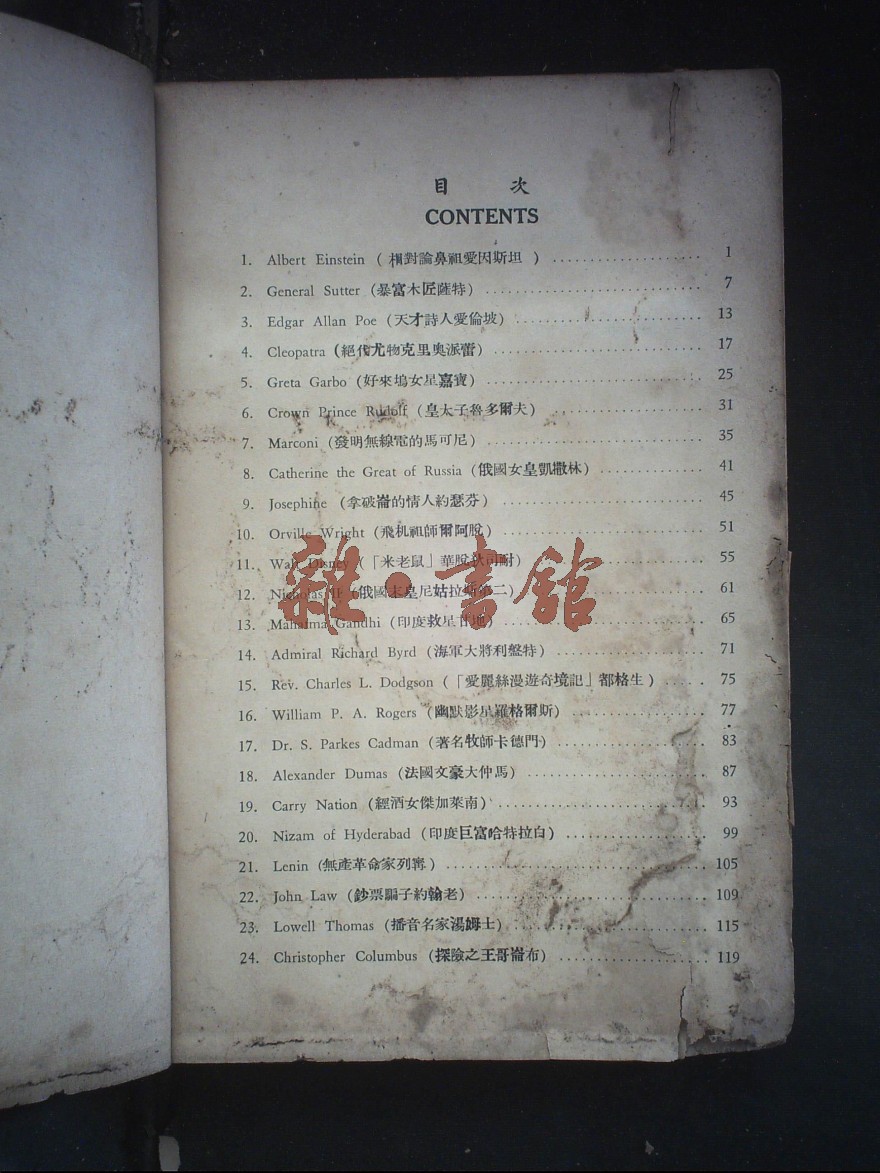 目 次
CONTENTS
1. Albert Einstein (相對論鼻祖愛因斯坦) .................... 1
2. General Sutter (暴富木匠薩特) .................... 7
3. Edgar Allan Poe (天才詩人愛倫坡) .................... 13
4. Cleopatra (絕代尤物克里奧派蕾) .................... 17
5. Greta Garbo (好來塢女星嘉寶) .................... 25
6. Crown Prince Rudolf (皇太子魯多爾夫) .................... 31
7. Marconi (發明無線電的馬可尼) .................... 35
8. Catherine the Great of Russia (俄國女皇凱撒林) .................... 41
9. Josephine (拿破崙的情人約瑟芬) .................... 45
10. Orville Wright (飛机祖師爾阿脫) .................... 51
11. Walt Disney (「米老鼠」華脫狄司耐) .................... 55
12. Nicholas II (俄國末皇尼姑拉斯第二) .................... 61
13. Mahatma Gandhi (印度救星甘地) .................... 65
14. Admiral Richard Byrd (海軍大將利盤特) .................... 71
15. Rev. Charles L. Dodgson (「愛麗絲漫遊奇境記」都格生) ..... 75
16. William P. A. Rogers (幽默影星羅格爾斯) .................... 77
17. Dr. S. Parkes Cadman (著名牧師卡德門) .................... 83
18. Alexander Dumas (法國文豪大仲馬) .................... 87
19. Carry Nation (經酒女傑加萊南) .................... 93
20. Nizam of Hyderabad (印度巨富哈特拉白) .................... 99
21. Lenin (無產革命家列寗) .................... 105
22. John Law (鈔票騙子約翰老) .................... 109
23. Lowell Thomas (播音名家湯姆士) .................... 115
24. Christopher Columbus (探險之王哥崙布) .................... 119
雜·書館